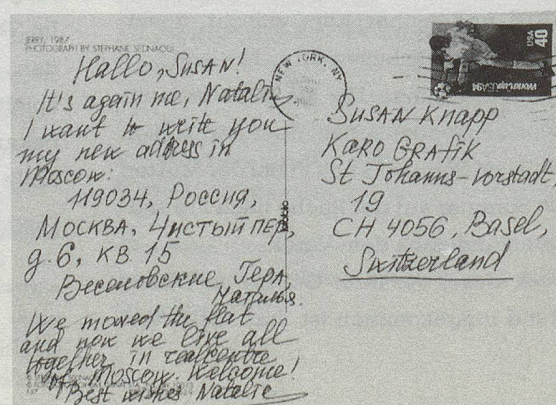 JERRY, 1987
PHOTOGRAPH BY STEPHANE SEDNAOUI
Hallo, Susan!
It's again me, Natalie
I want to write you
my new address in
Moscow:
119034, Россия,
Москва, Чистый пер,
д. 6, кв. 15
Веселовские Гера,
Наталья.
We moved the flat
and now we live all
together in realcentre
of Moscow. Welcome!
Best wishes Natalie
NEW YORK, NY
WorldCupUSA94
USA
40
Susan Knapp
Karo Grafik
St Johanns-Vorstadt,
19
CH 4056, Basel,
Switzerland